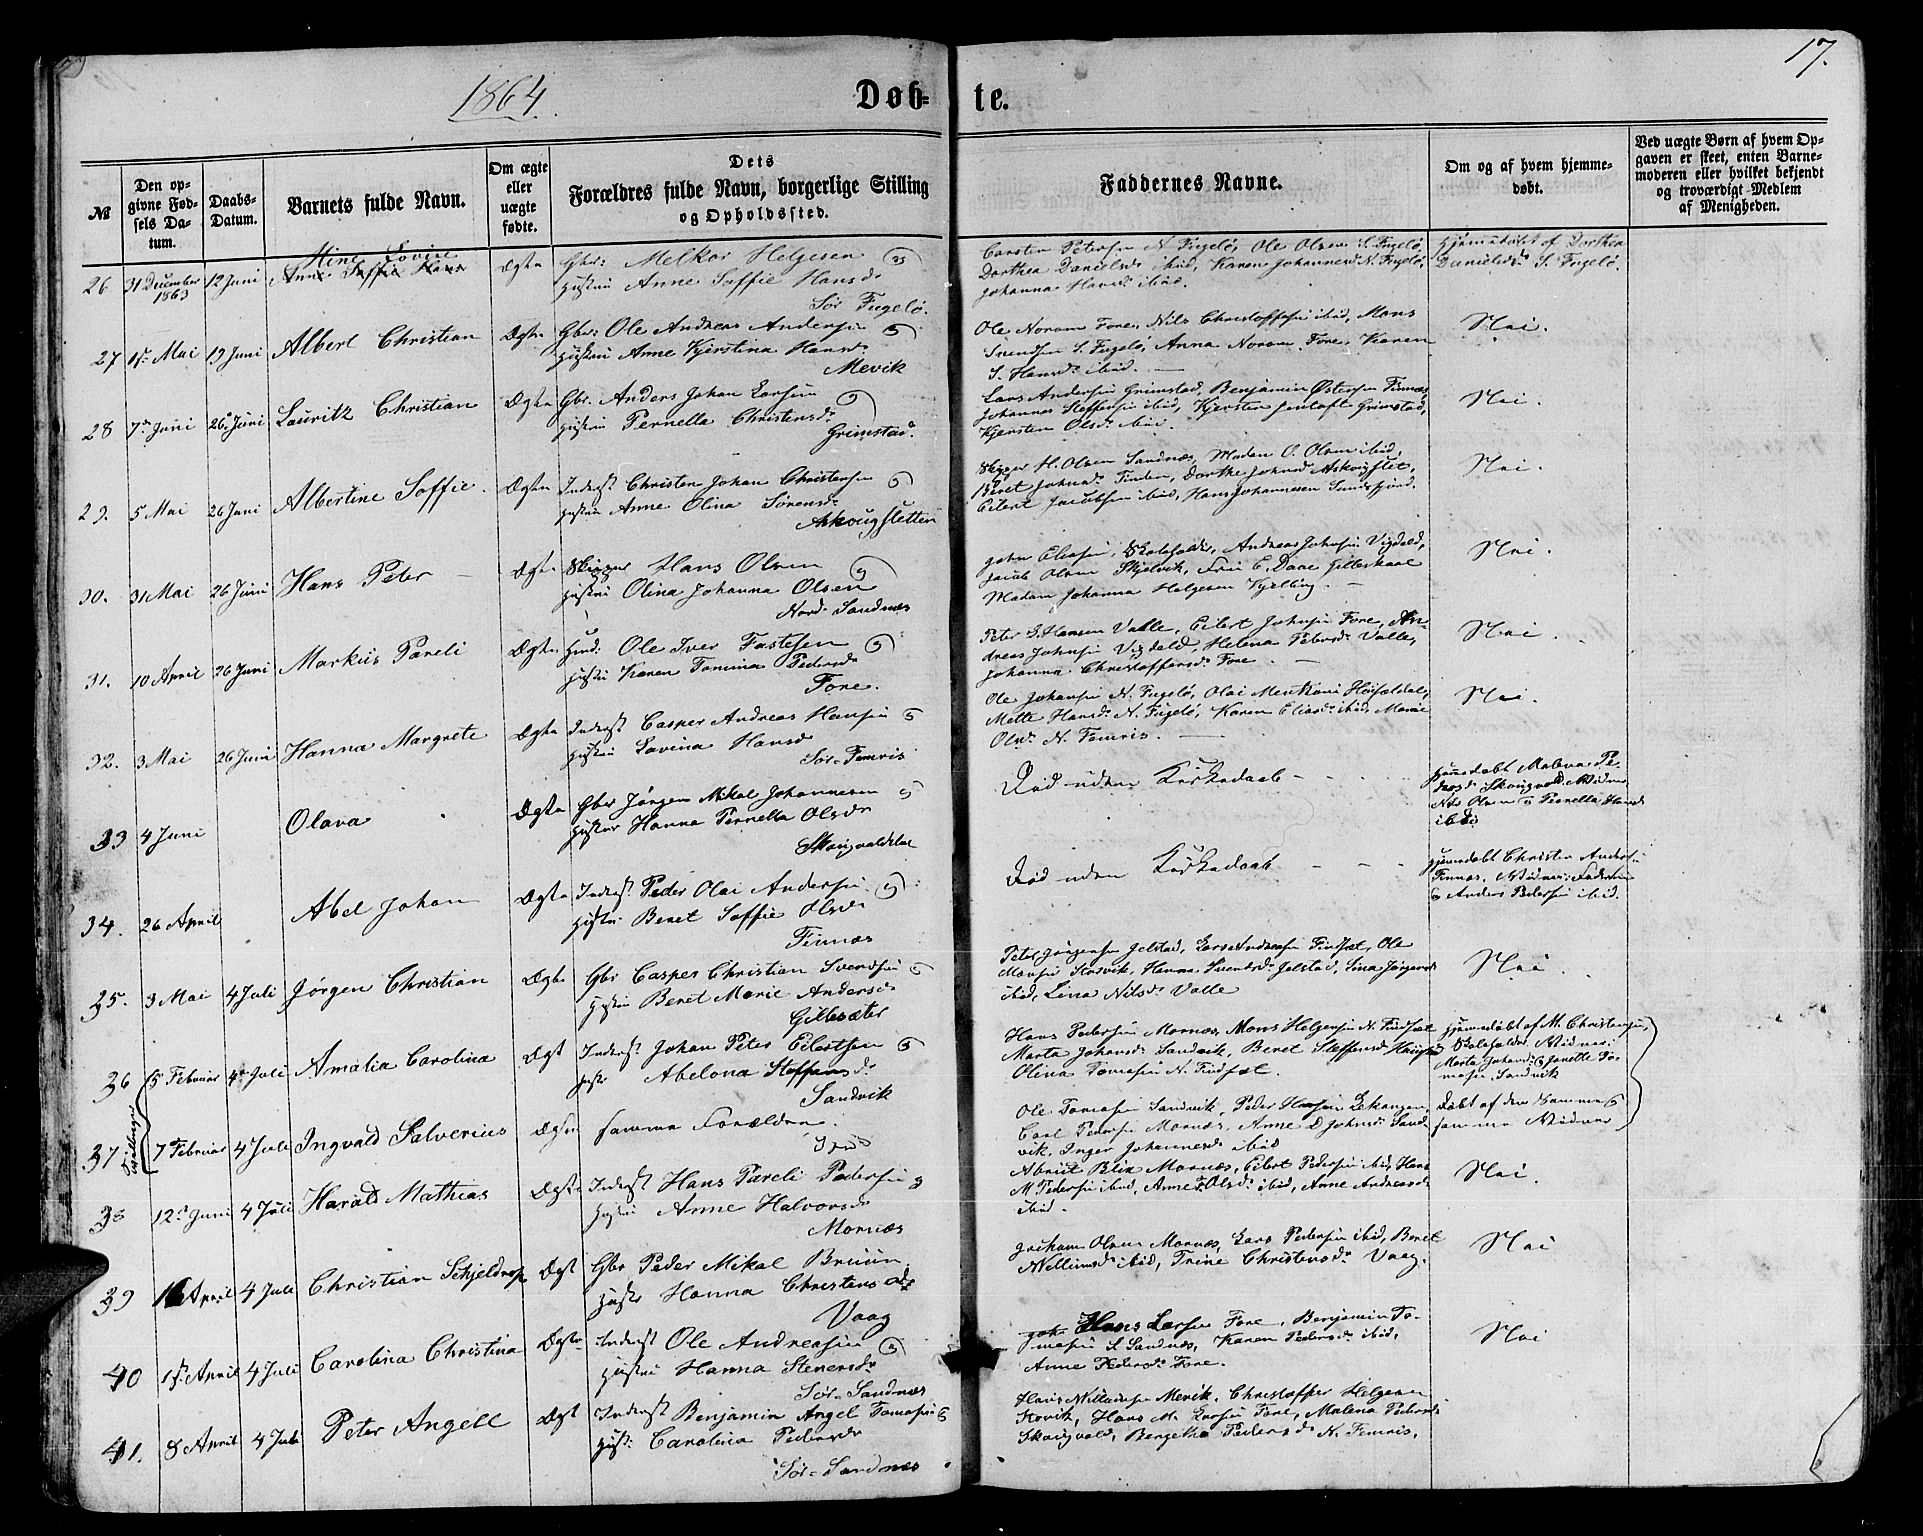 1864
Døb- te.
17.
№
Den opgivne Fødsels Datum.
Daabs-Datum.
Barnets fulde Navn.
Om ægte eller uægte fødte.
Dets Forældres fulde Navn, borgerlige Stilling og Opholdssted.
Faddernes Navne.
Om og af hvem hjemmedøbt.
Ved uægte Børn af hvem Opgaven er skeet, enten Barnemoderen eller hvilket bekjendt og troværdigt Medlem af Menigheden.
26 31 December 1863 12 Juni Anne Soffie Hans Ægte Gbr: Melkor Helgesen
Hustru Anne Soffie Hansd.
Sør Fugelø.
Carsten Petersen N. Fugelø, Ole Olsen S. Fugelø,
Dorthea Danielsd. ibid, Karen Johannesd. N. Fugelø,
Johanna Hansd. ibid.
Hjemmedøbt af Dorthea
Danielsd. S. Fugelø.
27 1st Mai 19 Juni Albert Christian Ægte Gbr: Ole Andreas Andersen
Hustru Anne Kjerstina Hansd.
Mevik
Ole Noram Fore, Nils Christoffersen ibid, Mons
Svendsen S. Fugelø, Anna Noram Fore, Karen
S. Hansd. ibid.
Nei.
28 7de Juni 26 Juni Lauritz Christian Ægte Gbr. Anders Johan Larsen
Hustru Pernella Christensd.
Grimstad.
Lars Andersen Grimstad, Benjamin Østensen Finnæs,
Johannes Steffensen ibid, Kjersten Jentoft Grimstad,
Kjersten Olsd. ibid.
Nei.
29. 5 Mai 26 Juni Albertine Soffie. Ægte Inderst Christen Johan Christensen
Hustru Anne Olina Sørensd.
Askougsletten
Skipper H. Olsen Sandnæs, Madam O. Olsen ibid,
Beret Johnsd. Finden, Dorthe Johnsd.
Eilert Jacobsen ibid, Hans Johannesen
Nei.
30. 31 Mai 26 Juni Hans Peter Ægte Skipper Hans Olsen
Hustru Olina Johanna Olsen
Nord-Sandnæs
John Eliasen, Skoleholder, Andreas Johnsen Vigdald,
Jacob Olsen Skjelvik, Fru E. Daae Gilleskaal
Madam Johanna Helgesen Kjelling.
Nei.
31. 10 April 26 Juni Markus Pareli Ægte Husm: Ole Iver Fastesen
Hustru Karen Tomina Pedersd.
Fore.
Peter G. Hansen Valle, Eilert Johnsen Fore, An-
dreas Johnsen Vigdald, Helena Petersd. Valle,
Johanna Christoffersd. Fore.
Nei.
32. 3 Mai 26 Juni Hanna Margrete Ægte Inderst Casper Andreas Hansen
Hustru Lovina Hansd.
Sør-Femris
Ole Johansen N. Fugelø, Olai Høifaldal,
Mette Hansd. N. Fugelø, Karen Eliasd. ibid, Marie
Olsd. N. Femris.
Nei.
33 4 Juni Olava Ægte Gbr Jørgen Mikal Johannesen
Hustru Hanna Pernella Olsd.
Skougvoldslet
Død uden Kirkedaab
Hjemmedøbt Malena Pe-
dersd. Skougvold. Vidner
Nils Olsen og Pernella Hansd.
ibid
34. 26 April Abel Johan Ægte Inderst Peder Olai Andersen
Hustru Beret Soffie Olsd.
Finnæs
Død uden Kirkedaab
Hjemmedøbt Christen Andersen
Finnæs, Vidner: Faderen
og Anders Pedersen ibid.
35. 3 Mai 4 Juli Jørgen Christian Ægte Gbr Casper Christian Svendsen
Hustru Beret Marie Andersd.
Gillesæter
Peter Jørgensen Jelstad, Lars Andreasen Findset, Ole
Monsen Korsvik, Hanna Svendsd. Jelstad, Lina Jørgensd.
ibid, Lina Nilsd. Valle
Nei.
36 5 Februar 4 Juli Amalia Carolina Ægt Inderst Johan Peter Eilertsen
Hustr Abelona Steffensd.
Sandvik
Hans Pedersen Mornæs, Mons Helgesen N. Findset
Marta Johansd. Sandvik, Beret Steffensd.
Olina Tomasen N. Findset.
Hjemmedøbt af M. Christensen,
Skoleholder, Vidner:
Marta Johansd. og Janette To-
masen, Sandvik
Tvillinger
37 7 Februar 4 Juli Ingvald Salverius Ægte samme Forældre
Ibid
Ole Tomasen Sandvik, Peder Hansen
Carl Pedersen Mornæs, Anne D. Johnsd. Sand-
vik, Inger Johannesd. ibid
Døbt af den Samme og
samme Vidner
38 12te Juni 4 Juli Harald Mathias Ægte Inderst Hans Pareli Pedersen
Hustru Anne Halvorsd.
Mornæs
Abriet Blix Mornæs, Eilert Pedersen ibid, Hans
M. Pedersen ibid, Anne Olsd. ibid, Anne Andreasd.
ibid.
Nei.
39 16 April 4 Juli Christian Schjeldrop Ægt Gbr Peder Mikal Bruun
Hustr Hanna Christensd.
Vaag
Jochum Olsen Mornæs, Lars Pedersen ibid, Beret
Willumsd. ibid, Trine Christensd. Vaag.
Nei
40 1st April 4 Juli Carolina Christina Ægte Inderst Ole Andreasen
Hustru Hanna Steversd.
Sør-Sandnæs
Hans Larsen Fore, Benjamin To-
masen S. Sandnæs, Karen Pedersd. ibid,
Anne Pedersd. Fore.
Nei
41. 8 April 4 Juli Peter Angell Ægt Inderst Benjamin Angel Tomasen
Hust: Carolina Pedersd.
Sør-Sandnæs
Hans Willumsen Mevik, Christoffer Helgesen
Kovik, Hans M. Larsen Fore, Malena Pedersd.
Skougvold, Bergethe Pedersd. N. Femris.